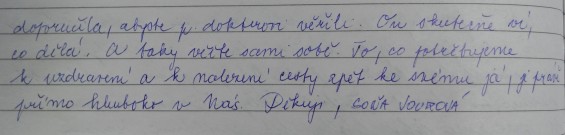 doporučila, abyste p. doktorovi věřili. On skutečně ví,
co dělá. A taky věřte sami sobě. To, co potřebujeme
k uzdravení a k nalezení cesty zpět ke svému já, je právě
přímo hluboko v Nás. Děkuji,